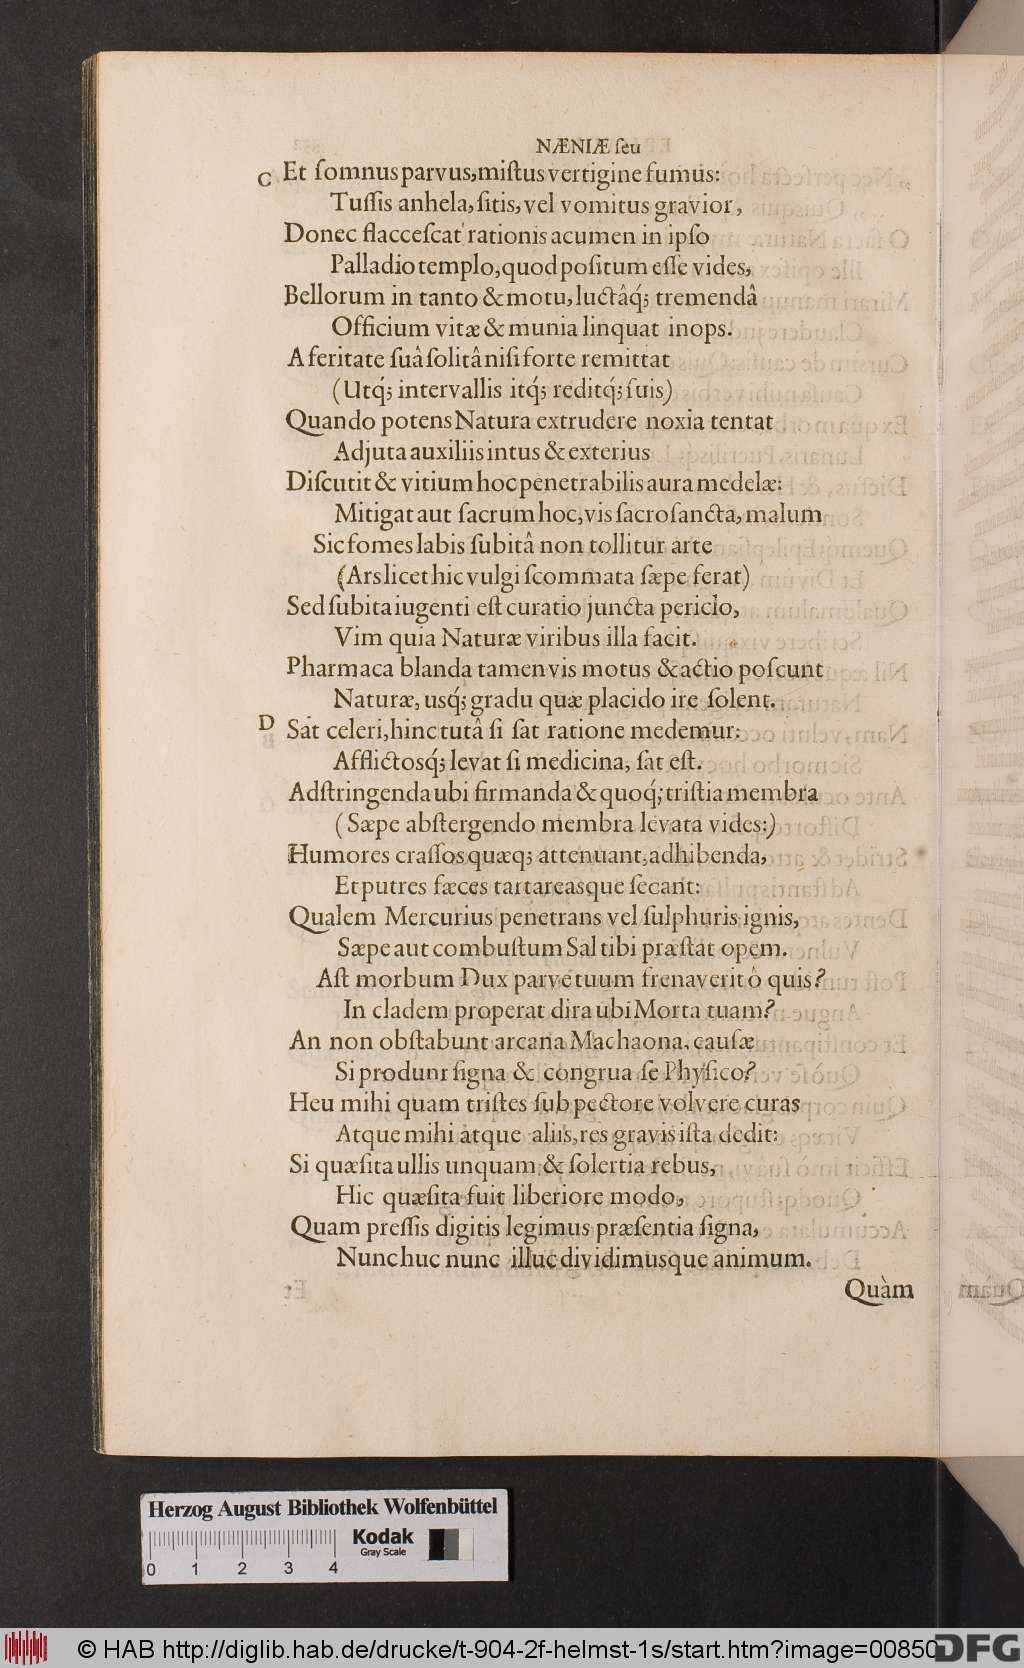 NÆNIÆ ſeu
C Et ſomnus parvus, miſtus vertigine fumus:
Tuſſis anhela, ſitis, vel vomitus gravior,
Donec flacceſcat rationis acumen in ipſo
Palladio templo, quod poſitum eſſe vides,
Bellorum in tanto & motu, luctâq́; tremendâ
Officium vitæ & munia linquat inops.
A feritate ſuâ ſolitâ niſi forte remittat
(Utq́; intervallis itq́; reditq́; ſuis)
Quando potens Natura extrudere noxia tentat
Adjuta auxiliis intus & exterius
Diſcutit & vitium hoc penetrabilis aura medelæ:
Mitigat aut ſacrum hoc, vis ſacroſancta, malum
Sic fomes labis ſubitâ non tollitur arte
(Ars licet hic vulgi ſcommata ſæpe ferat)
Sed ſubita iugenti eſt curatio juncta periclo,
Vim quia Naturæ viribus illa facit.
Pharmaca blanda tamen vis motus & actio poſcunt
Naturæ, usq́; gradu quæ placido ire ſolent.
D Sat celeri, hinc tutâ ſi ſat ratione medemur:
Afflictosq́; levat ſi medicina, ſat eſt.
Adſtringenda ubi firmanda & quoq́; triſtia membra
(Sæpe abſtergendo membra levata vides:)
Humores craſſos quæq; attenuant, adhibenda,
Et putres fæces tartareasque ſecant:
Qualem Mercurius penetrans vel ſulphuris ignis,
Sæpe aut combuſtum Sal tibi præſtat opem.
Aſt morbum Dux parve tuum frenaverit ô quis?
In cladem properat dira ubi Morta tuam?
An non obſtabunt arcana Machaona, cauſæ
Si produnt ſigna & congrua ſe Phyſico?
Heu mihi quam triſtes ſub pectore volvere curas
Atque mihi atque aliis, res gravis iſta dedit:
Si quæſita ullis unquam & ſolertia rebus,
Hic quæſita fuit liberiore modo,
Quam preſſis digitis legimus præſentia ſigna,
Nunc huc nunc illuc dividimusque animum.
Quàm
Herzog August Bibliothek Wolfenbüttel
Kodak
Gray Scale
0 1 2 3 4
© HAB http://diglib.hab.de/drucke/t-904-2f-helmst-1s/start.htm?image=00850
DFG